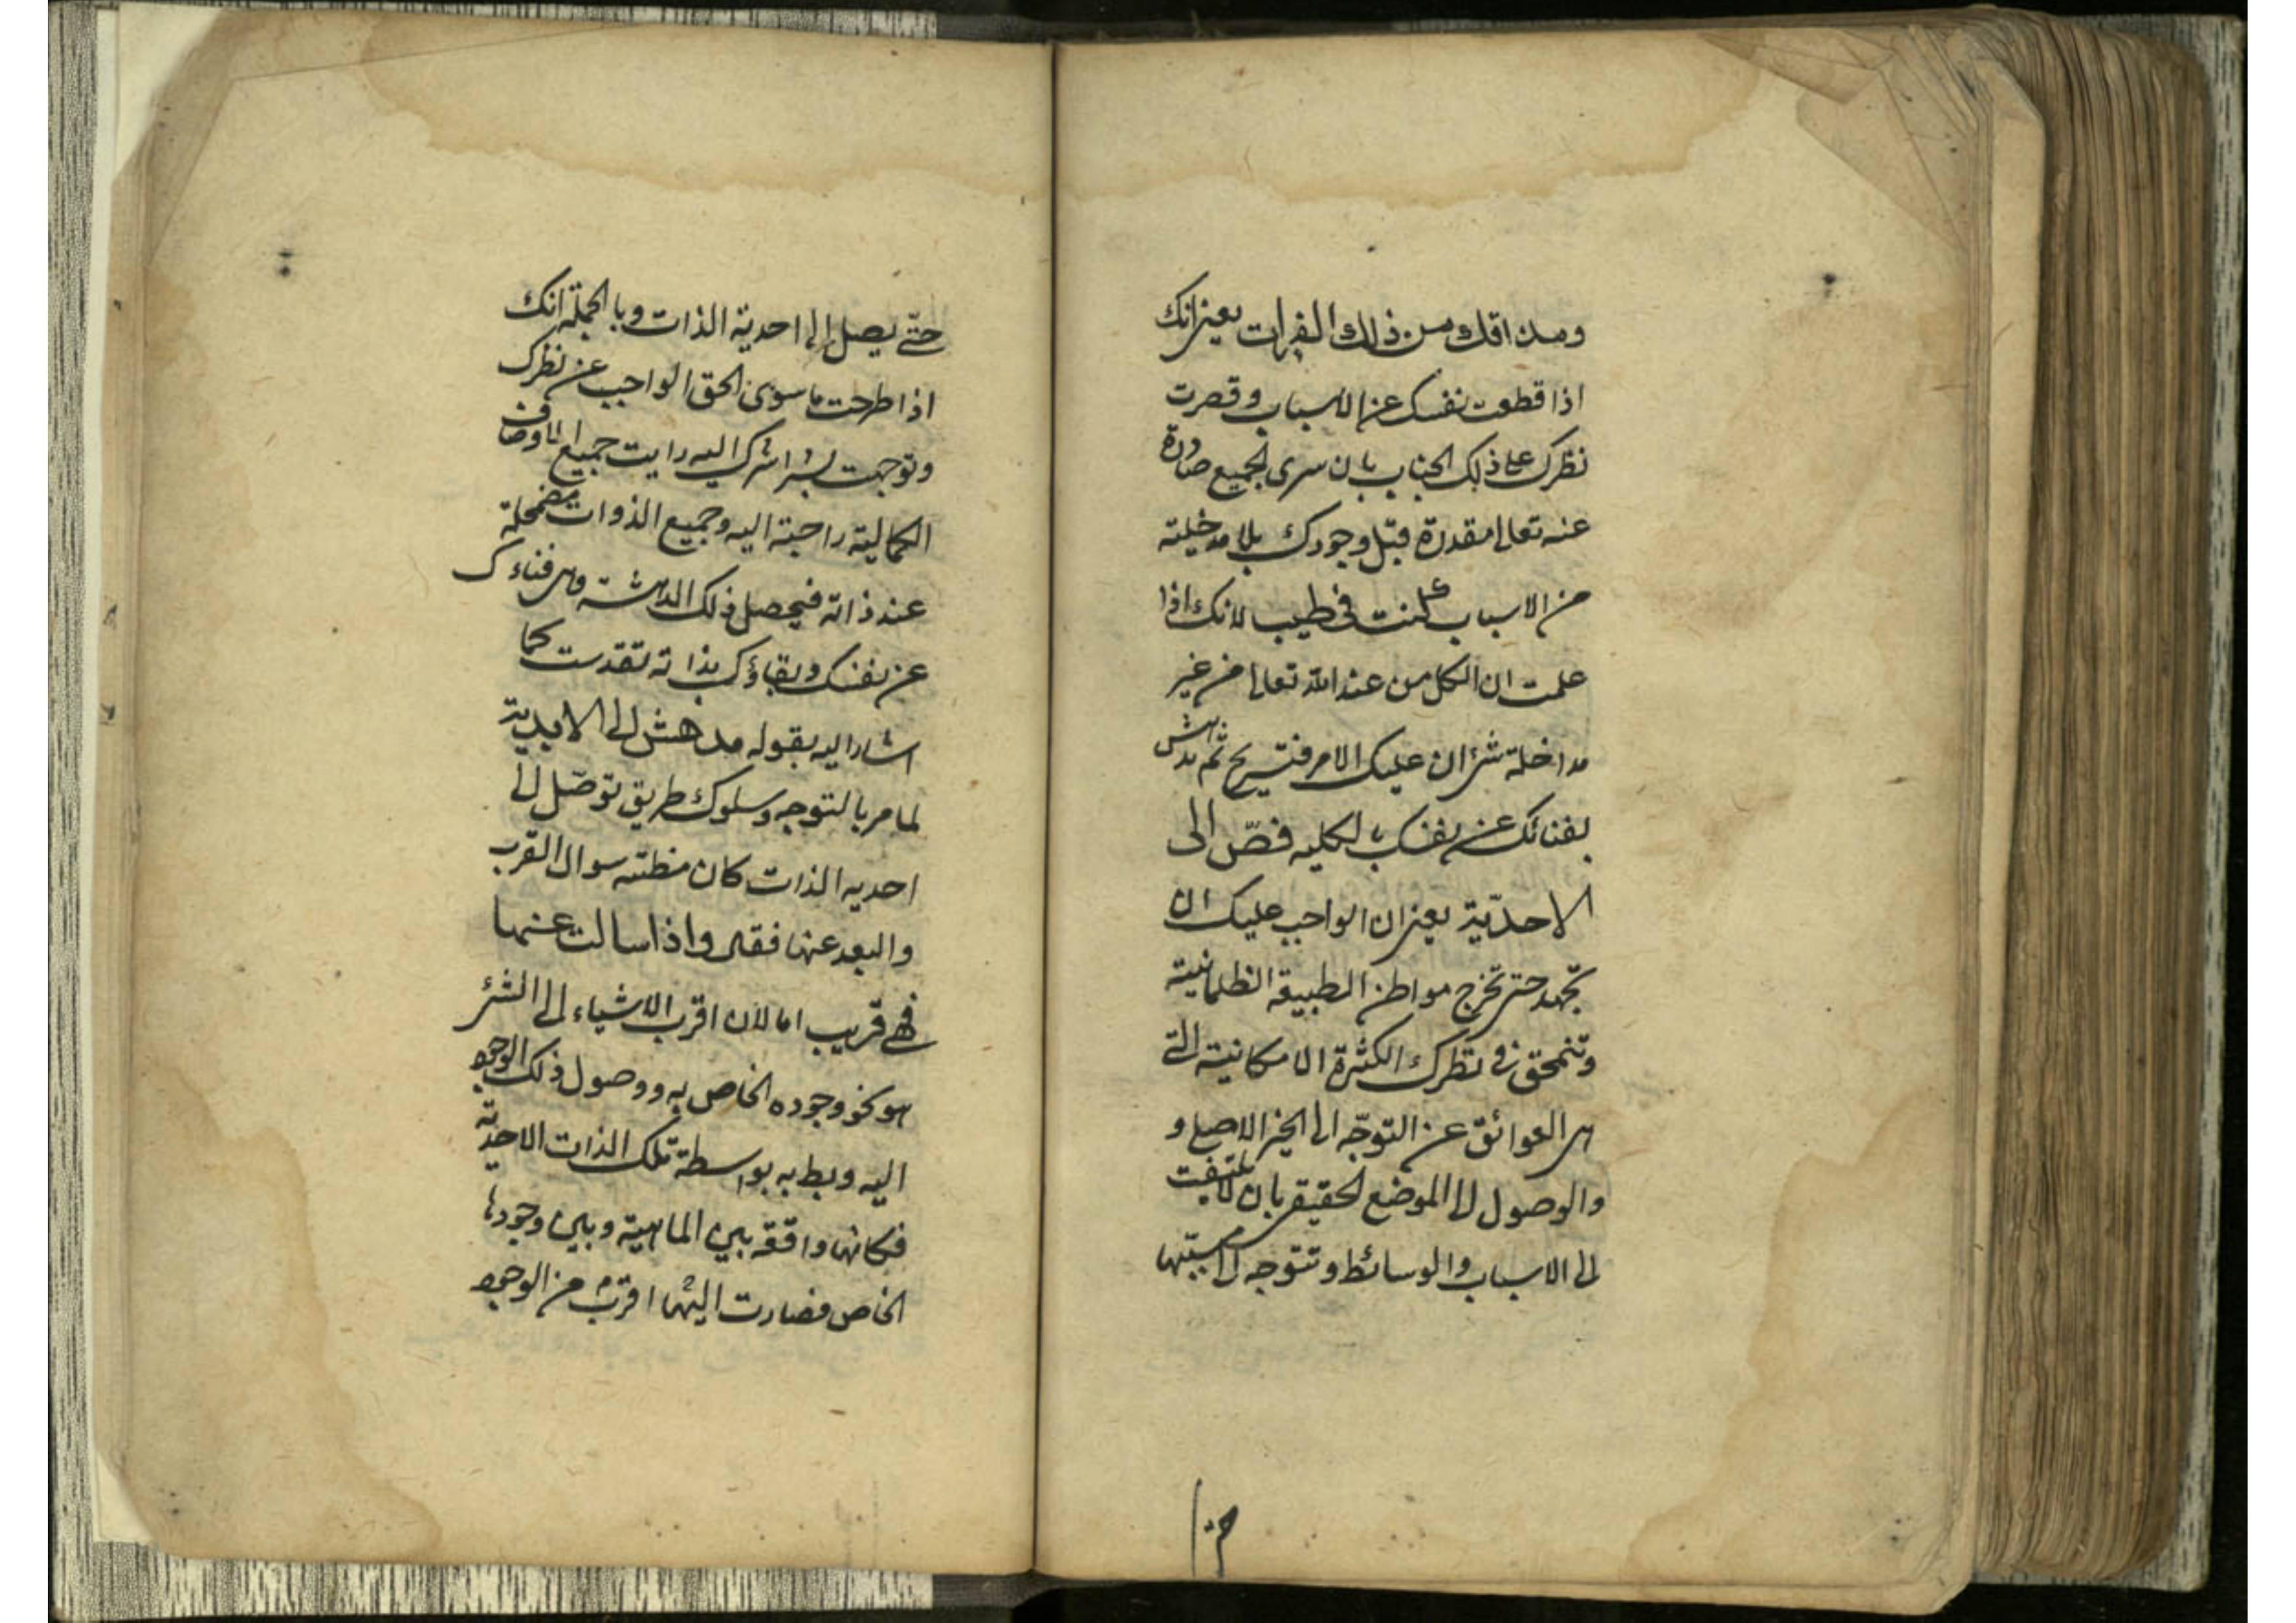 ومذاقك من ذلك الفرات يعنى انك
اذا قطعت نفسك عن الاسباب وقصرت
نظرك على ذلك الجناب بان سرى الجميع صادرة
عنه تعالى مقدرة قبل وجودك بلا مدخلية
من الاسباب كنت فى طيب لانك اذا
علمت ان الكل من عند الله تعالى من غير
مداخلة شئ ان عليك الامر فتسريح ثم تدهش
بفنائك عن نفسك بالكليه فصّ الى
الاحديّة يعنى ان الواجب عليك ان
تجهد حتى تخرج مواطن الطبيعة الظلمانية
وتنمحق فى نظرك الكثرة الامكانية التى
هى العوائق عن التوجّه الى الخير الاصلى و
والوصول الى الموضع الحقيقى بان لا تلتفت
الى الاسباب والوسائط وتتوجه الى مسببها
١٠٣
حتّى يصل الى احدية الذات وبالجملة انك
اذا طرحت ما سوى الحق الواجب عن نظرك
وتوجهت بشراشرك اليه رايت جميع الاوصاف
الكمالية راجعة اليه وجميع الذوات مضمحلة
عند ذاته فيحصل ذلك الدهشة وهى فناءك
عن نفسك وبقاؤك بذاته تقدست كما
اشار اليه بقوله مدهش الى الابدية
لما مر بالتوجه وسلوك طريق توصّل الى
احديه الذات كان مظنته سوال القرب
والبعد عنها فقال واذا سالت عنها
فهى قريب اما لان اقرب الاشياء الى الشئ
هو نحو وجوده الخاص به ووصول ذلك الوجود
اليه وبط به بواسطة تلك الذات الاحدية
فكانها واقفه بين الماهية وبين وجودها
الخاص فصارت اليها اقرب من الوجود